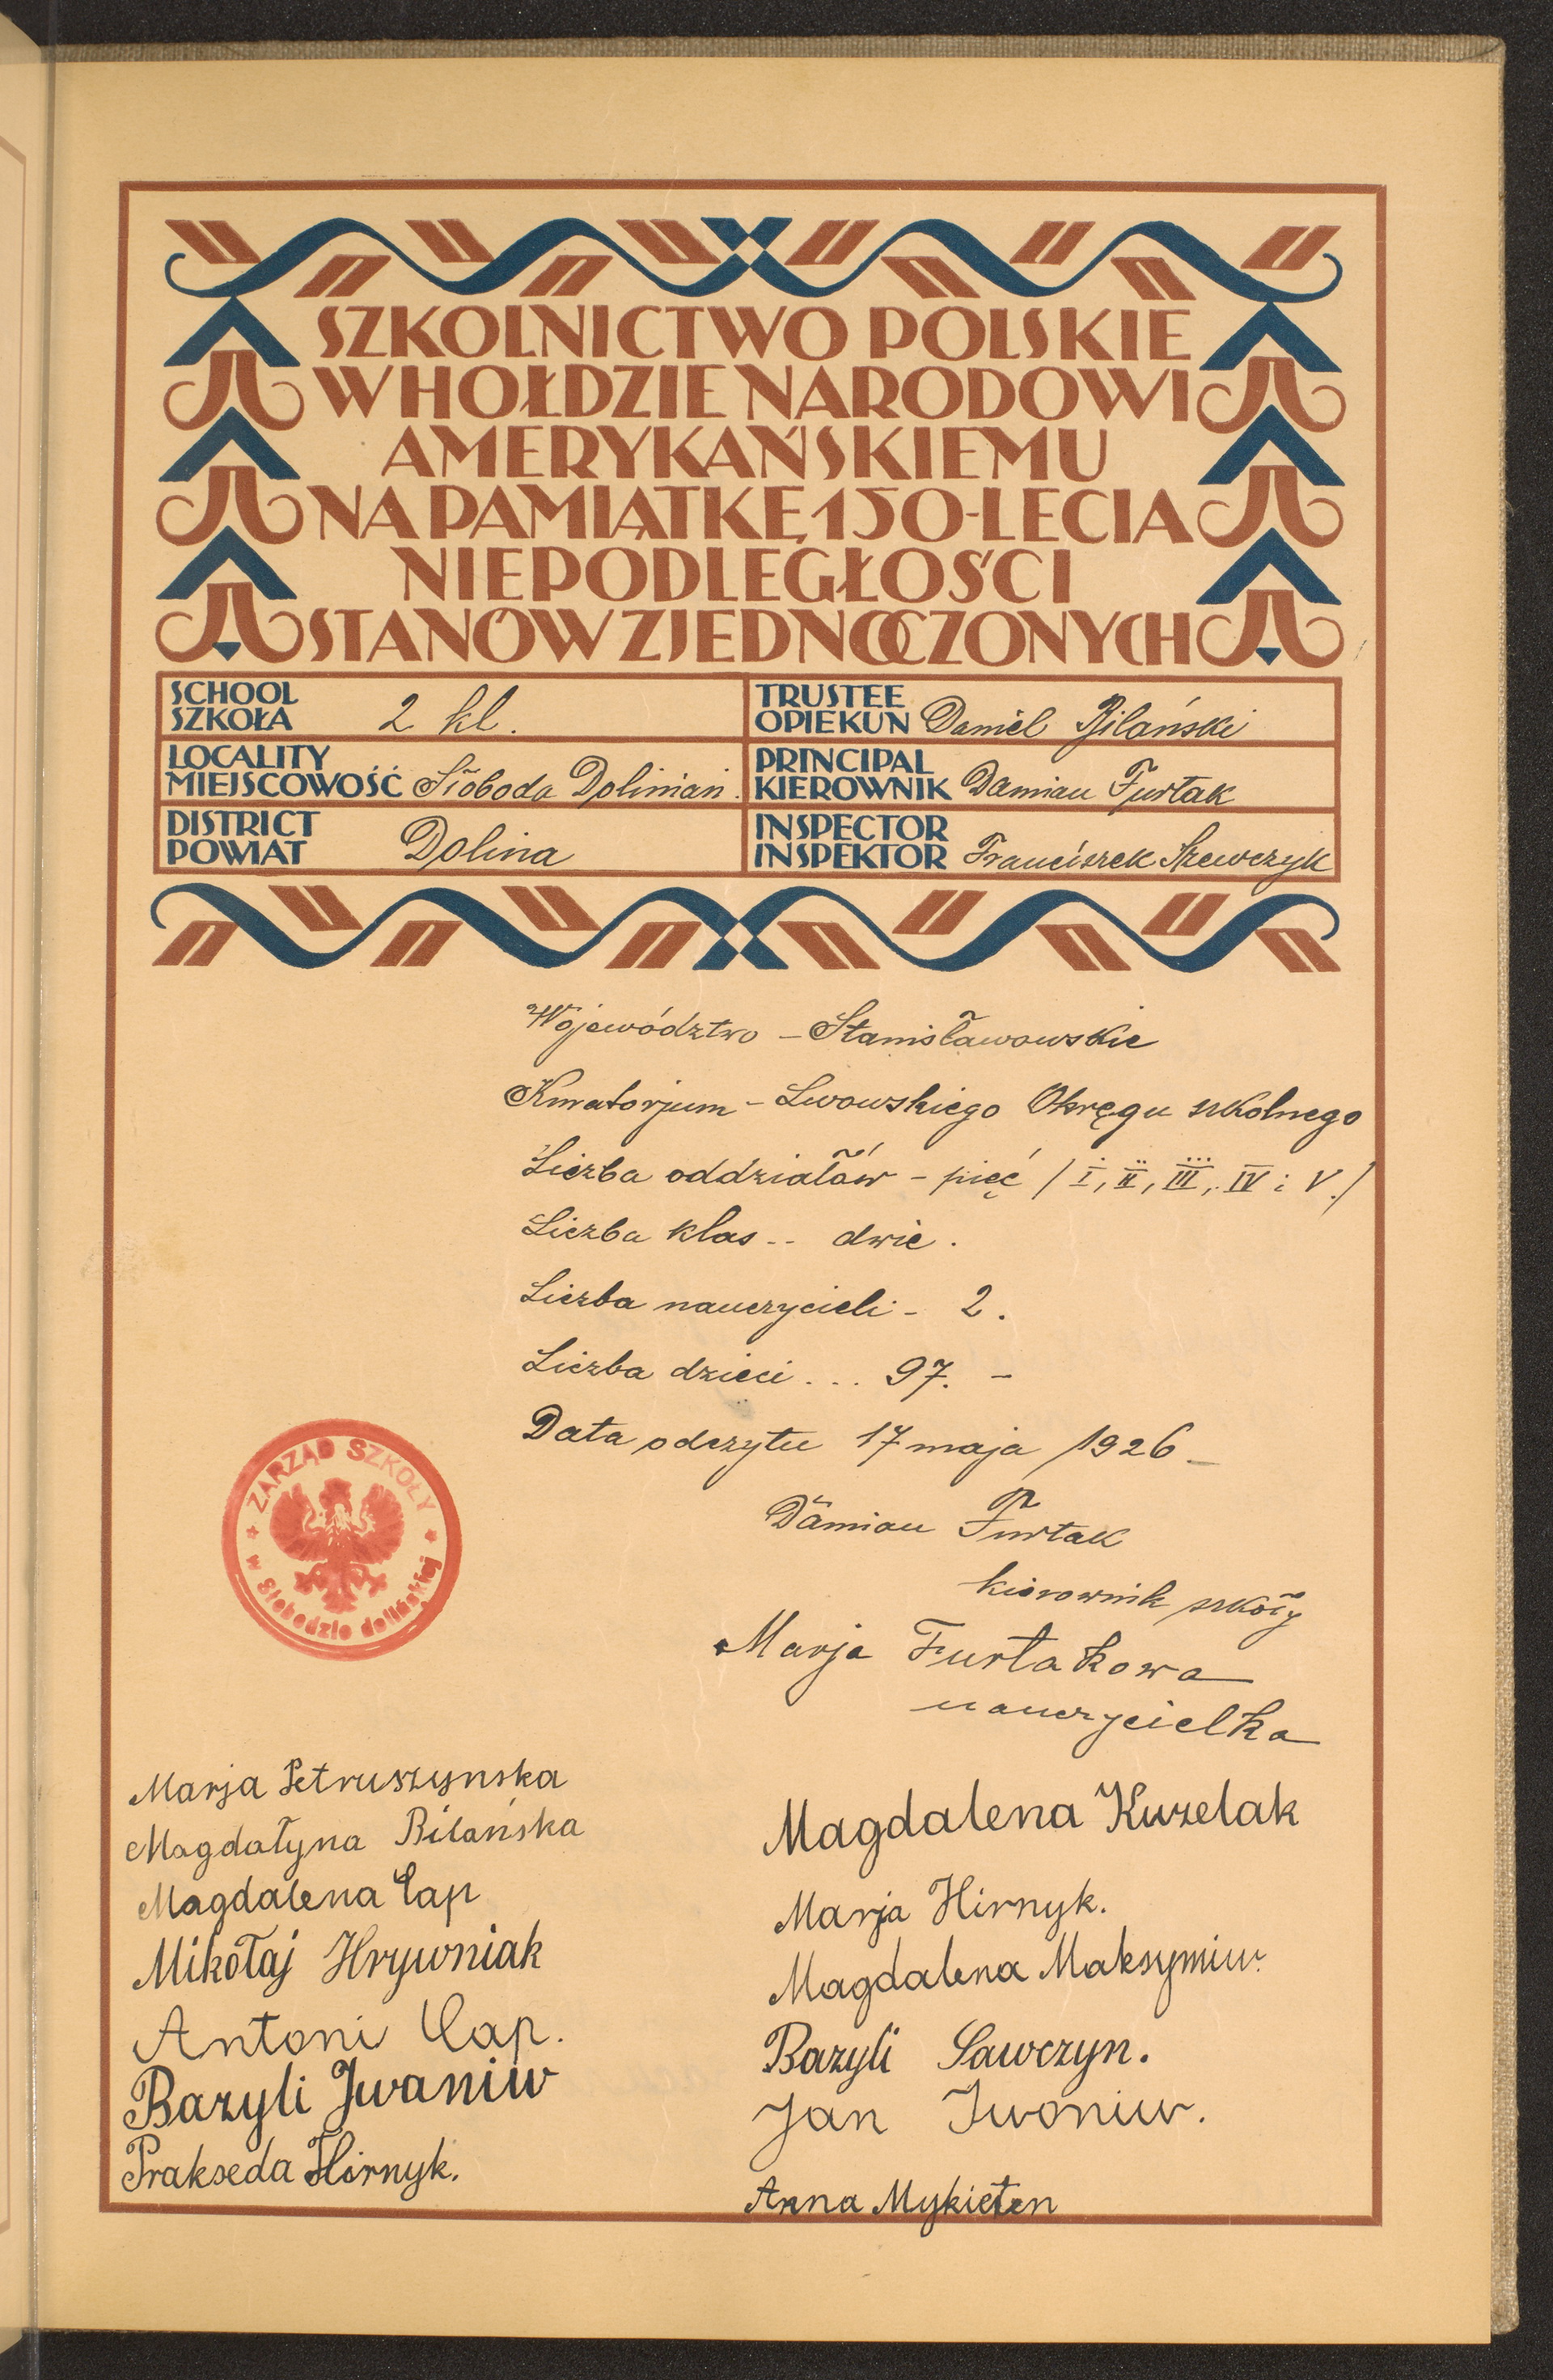 SZKOLNICTWO POLSKIE
W HOŁDZIE NARODOWI
AMERYKAŃSKIEMU
NA PAMIĄTKĘ 150-LECIA
NIEPODLEGŁOŚCI
STANÓW ZJEDNOCZONYCH
SCHOOL
SZKOŁA 2 kl.
TRUSTEE
OPIEKUN Daniel Bilański
LOCALITY
MIEJSCOWOŚĆ Słoboda Dolinian.
PRINCIPAL
KIEROWNIK Damian Furtak
DISTRICT
POWIAT Dolina
INSPECTOR
INSPEKTOR Franciszek Szewczyk
Województwo - Stanisławowskie
Kuratorjum - Lwowskiego Okręgu szkolnego
Liczba oddziałów - pięć / I, II, III, IV i V./
Liczba klas -- dwie.
Liczba nauczycieli - 2.
Liczba dzieci ... 97. -
Data odczytu 17 maja 1926 -
Damian Furtak
kierownik szkoły
Marja Furtakowa
nauczycielka
ZARZĄD SZKOŁY
w Słobodzie dolińskiej
Marja Petruszynska
Magdałyna Bilańska
Magdalena Cap
Mikołaj Hrywniak
Antoni Cap.
Bazyli Iwaniw
Prakseda Hirnyk.
Magdalena Kuzelak
Marja Hirnyk.
Magdalena Maksymiw.
Bazyli Sawczyn.
Jan Iwoniw.
Anna Mykieten